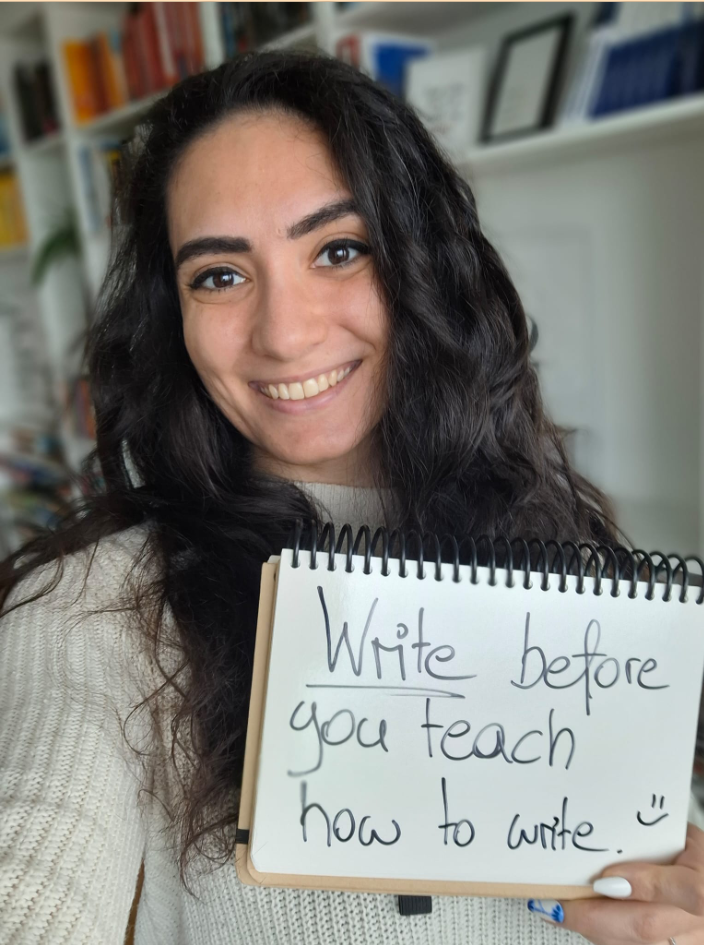 Write before
you teach
how to write. ”)